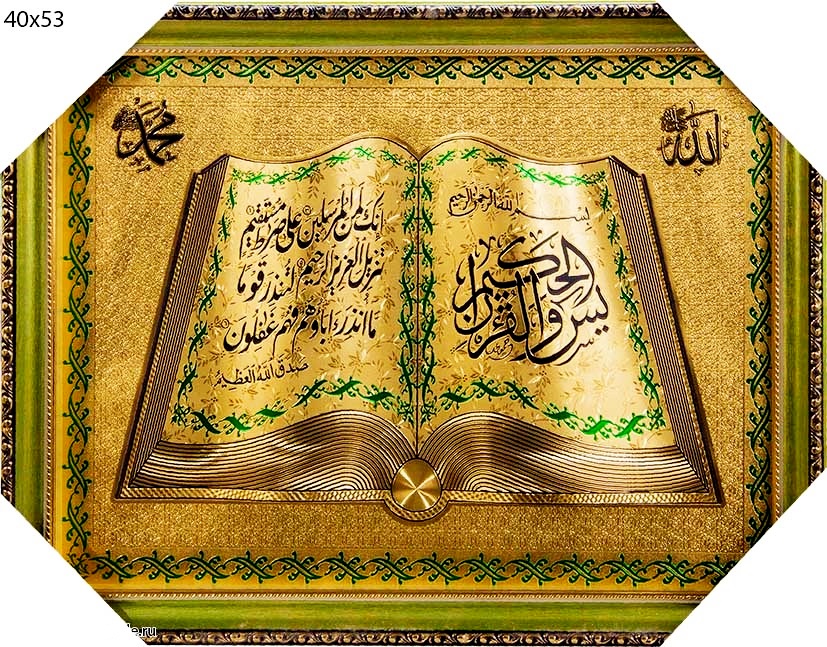 40x53
الله
محمد
بسم الله الرحمن الرحيم
يس والقرآن الحكيم
انك لمن المرسلين على صراط مستقيم
تنزيل العزيز الرحيم لتنذر قوما
ما انذر اباؤهم فهم غفلون
صدق الله العظيم